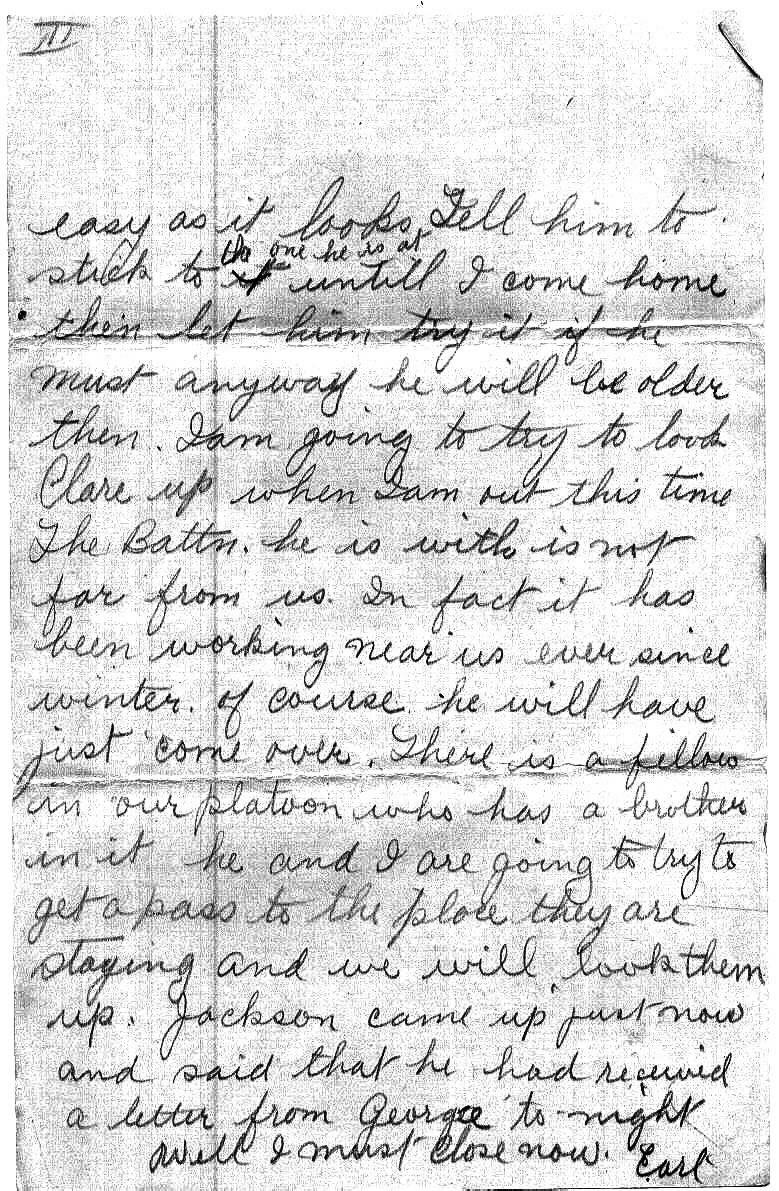 III
easy as it looks. Tell him to
the one he is at
stick to it untill I come home
then let him try it if he
must anyway he will be older
then. I am going to try to look
Clare up when I am out this time
The Battn. he is with is not
far from us. In fact it has
been working near us ever since
winter. of course he will have
just come over. There is a fellow
in our platoon who has a brother
in it he and I are going to try to
get a pass to the place they are
staying and we will look them
up. Jackson came up just now
and said that he had received
a letter from George to-night
Well I must close now. Earl